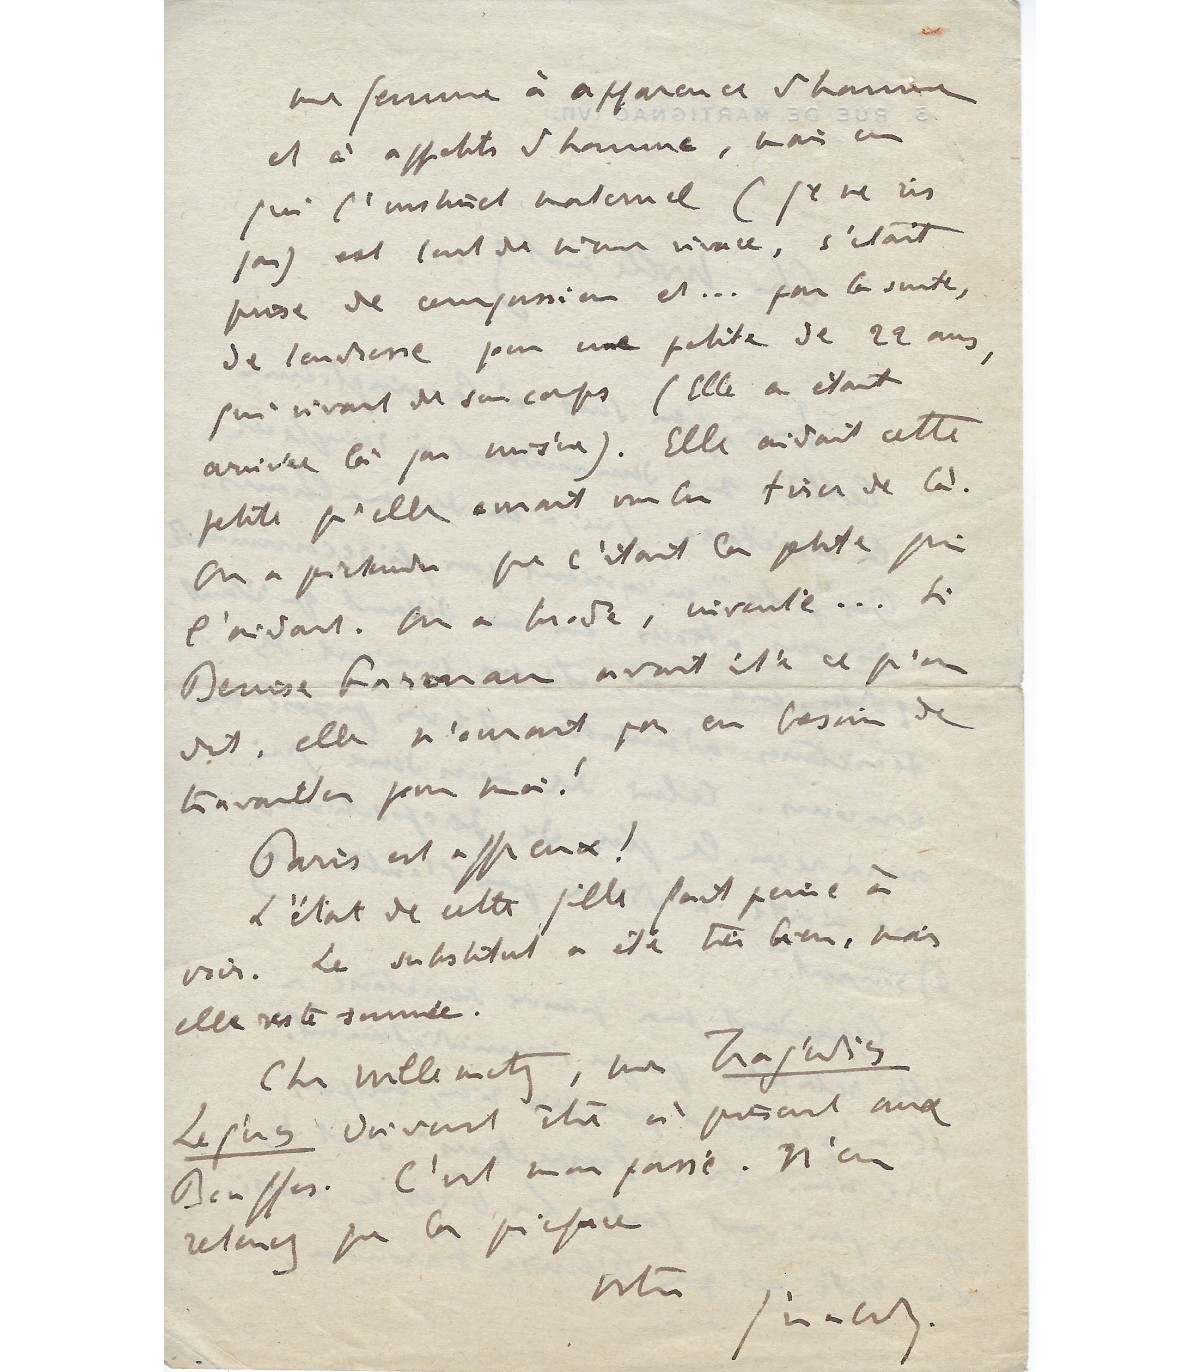 une femme à apparence d'homme
et à appétits d'homme, mais en
qui l'instinct maternel (je ne ris
pas) est tout de même vivace, s'était
prise de compassion et... par la suite,
de tendresse pour une petite de 22 ans,
qui vivait de son corps (Elle en était
arrivée là par misère). Elle aidait cette
petite qu'elle aurait voulu tirer de là.
On a prétendu que c'était la petite qui
l'aidait. On a brodé, inventé... Si
Denise avait été ce qu'on
dit, elle n'aurait pas eu besoin de
travailler pour moi!
Paris est affreux!
L'état de cette fille fait peine à
voir. Le substitut a été très bien, mais
elle reste sonnée.
Cher Willemetz, mes Tragédies
Légères doivent être à présent aux
Bouffes. C'est mon passé. N'en
retenez que la préface
votre Géraldy.
5 RUE DE MARTIGNAC (VII